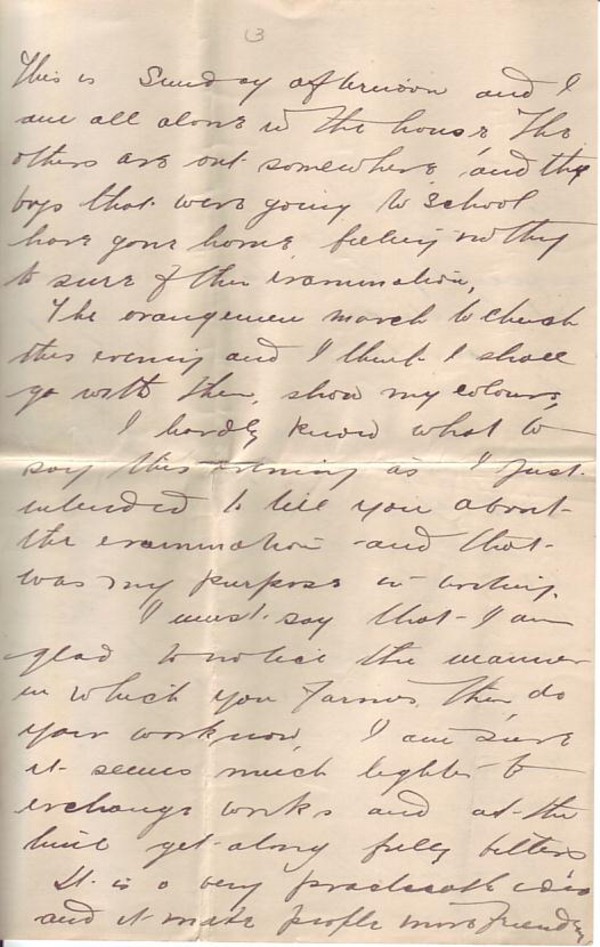 3
This is Sunday afternoon and I
am all alone in the house, The
others are out somewhere and the
boys that were going to School
have gone home feeling nothing
to sure of their examination,
The orangemen march to church
this evening and I think I shall
go with them, show my colours,
I hardly know what to
say this evening as I just
intended to tell you about
the examination and that
was my purpose in writing.
I must say that I am
glad to notice the manner
in which you farmers then do
your work now. I am sure
it seems much lighter to
exchange works and at the
time get along fully better
It is a very idea
and it make people more friendly,